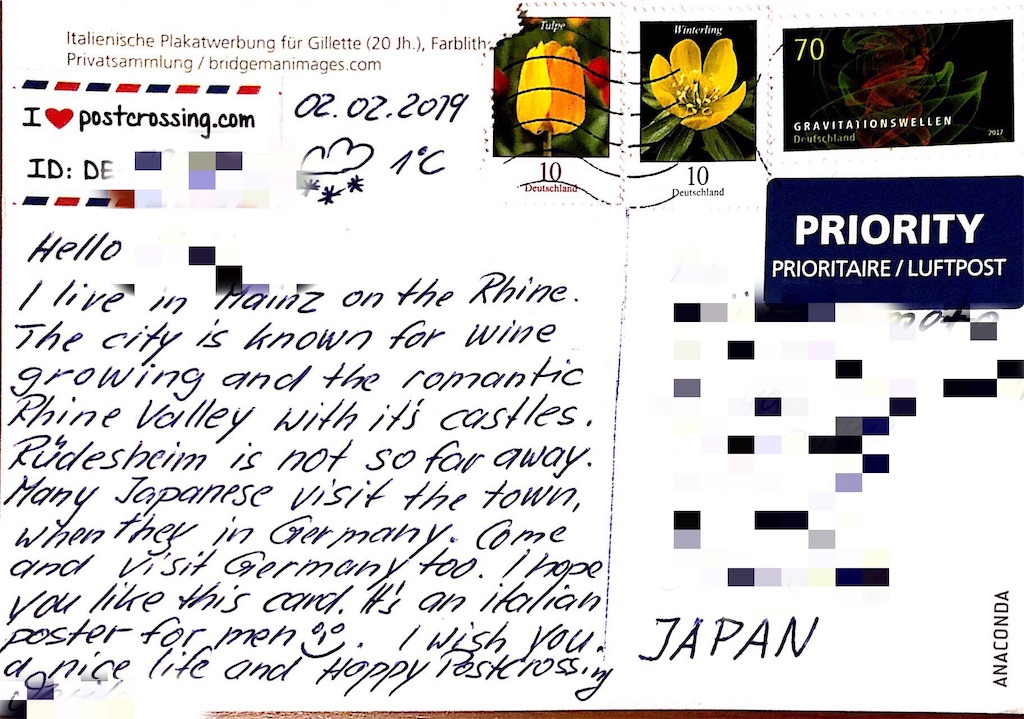 Italienische Plakatwerbung für Gillette (20 Jh.), Farblith
Privatsammlung / bridgemanimages.com
I ❤ postcrossing.com
ID: DE
02.02.2019
1°C
Tulpe
10
Deutschland
Winterling
10
Deutschland
70
GRAVITATIONSWELLEN
Deutschland
2017
PRIORITY
PRIORITAIRE / LUFTPOST
Hello
I live in Mainz on the Rhine.
The city is known for wine
growing and the romantic
Rhine Valley with it's castles.
Rüdesheim is not so far away.
Many Japanese visit the town,
when they in Germany. Come
and visit Germany too. I hope
you like this card. It's an italian
poster for men. I wish you
a nice life and Happy Postcrossing
JAPAN
ANACONDA